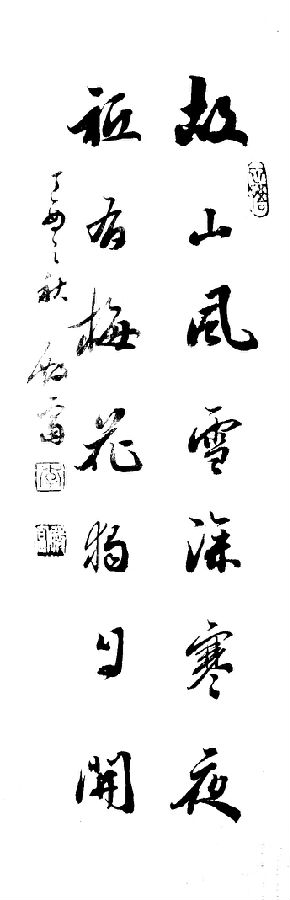 故山風雪深寒夜
祗有梅花獨自開
丁酉之秋